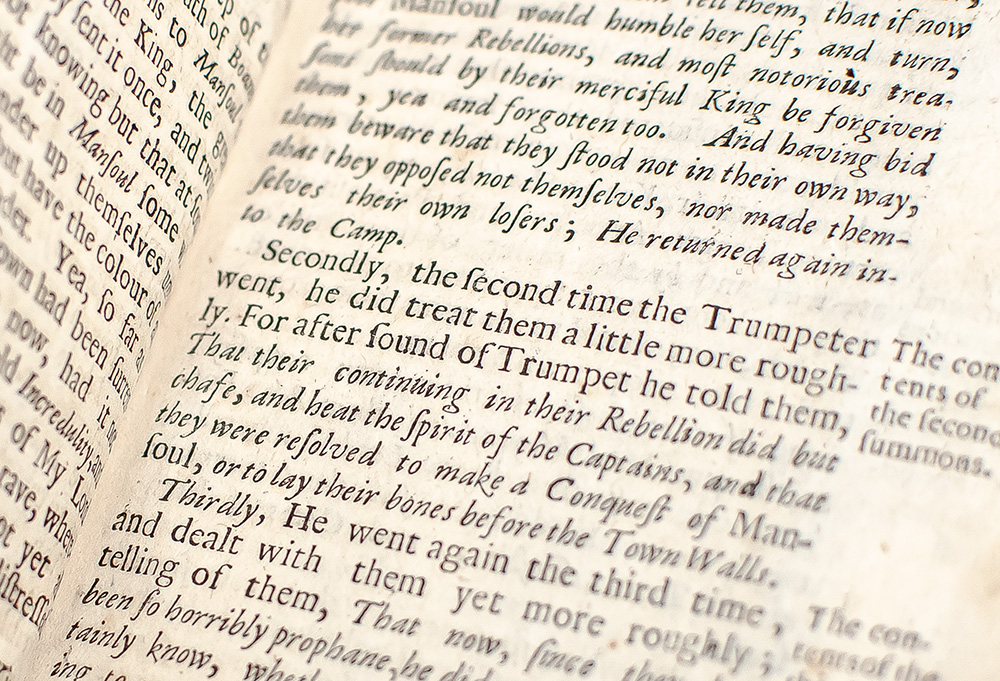 ep of t
th of Boan
ns to Mansoul
he King, the g
y ſent it once, and tw
ot knowing but that at ſo
ht be in Manſoul ſome
nder up themſelves u
but have the colour of
nder. Yea, ſo far a
own had been ſurre
now, had it
old Incredulity, an
of My Lo
rave, when
ot yet
diſtreſſ
tell them, that if now
Manſoul would humble her ſelf, and turn,
her former Rebellions, and moſt notorious trea-
ſons ſhould by their merciful King be forgiven
them, yea and forgotten too. And having bid
them beware that they ſtood not in their own way,
that they oppoſed not themſelves, nor made them-
ſelves their own loſers; He returned again in-
to the Camp.
Secondly, the ſecond time the Trumpeter
went, he did treat them a little more rough-
ly. For after ſound of Trumpet he told them,
That their continuing in their Rebellion did but
chafe, and heat the ſpirit of the Captains, and that
they were reſolved to make a Conqueſt of Man-
ſoul, or to lay their bones before the Town Walls.
Thirdly, He went again the third time,
and dealt with them yet more roughly;
telling of them, That now, ſince they
been ſo horribly prophane, he did
tainly know, whet
ing to
The con
tents of
the ſecond
ſummons.
The con-
tents of the